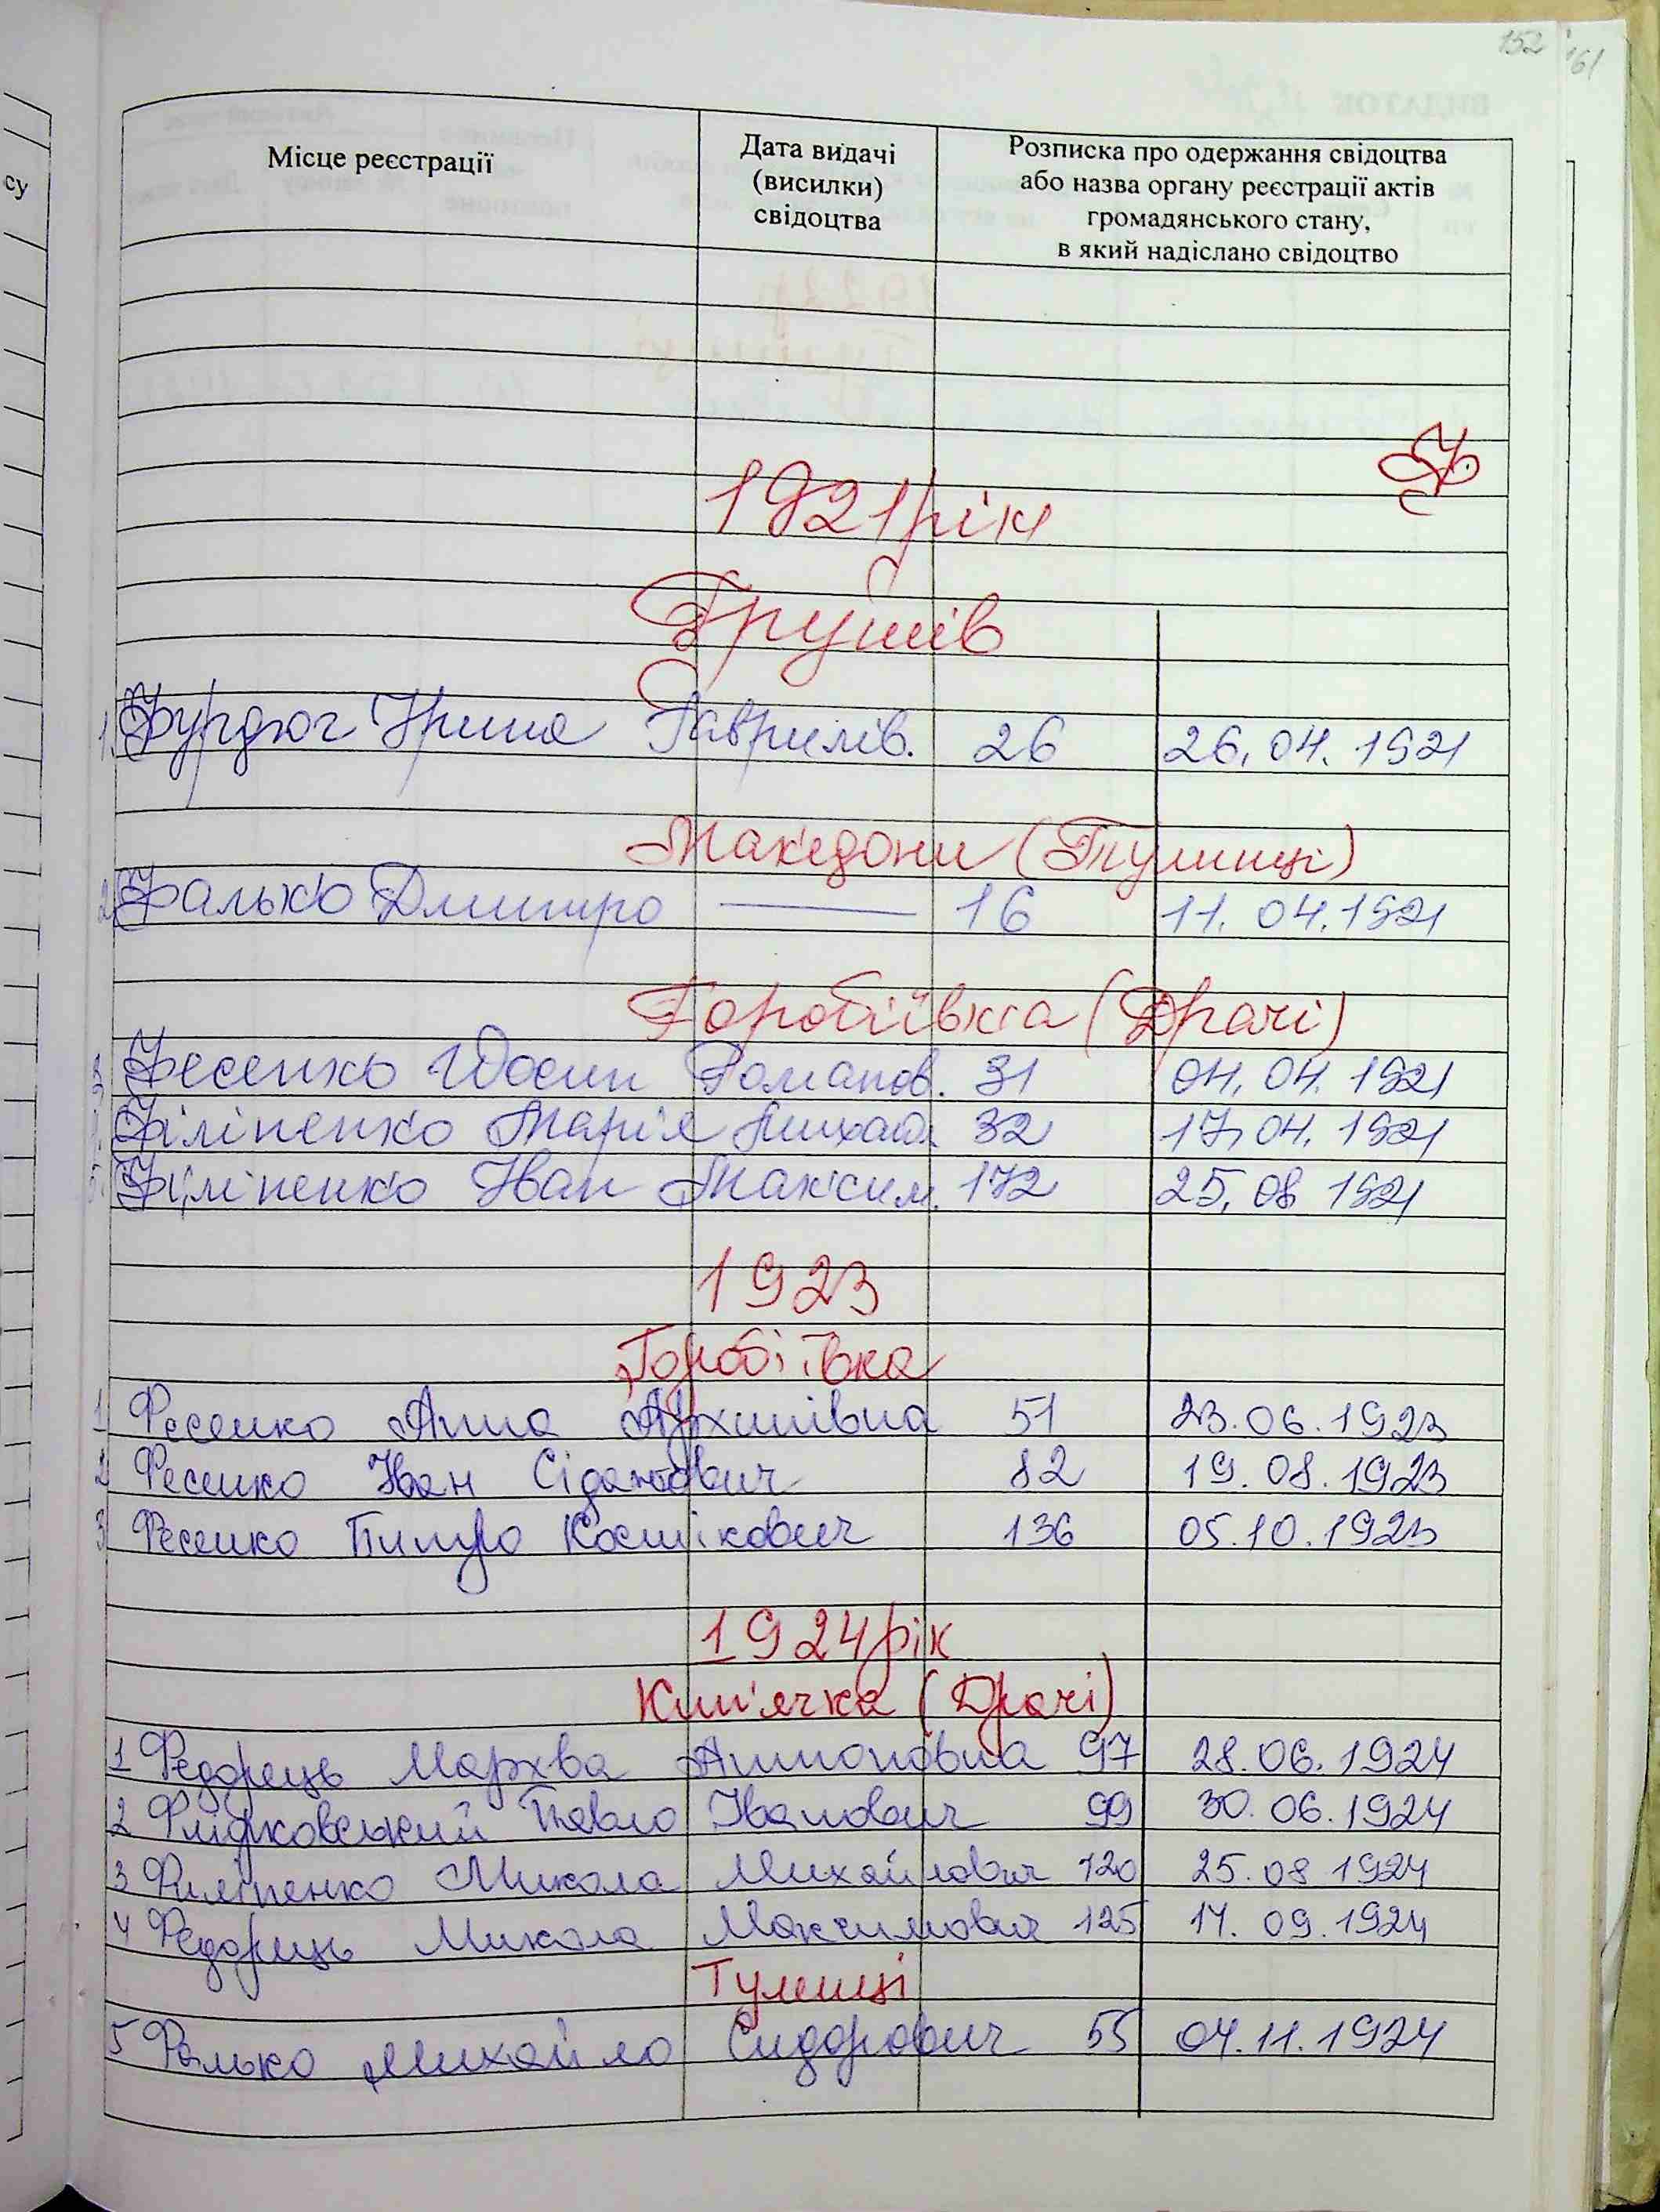 152 161
су
Місце реєстрації
Дата видачі
(висилки)
свідоцтва
Розписка про одержання свідоцтва
або назва органу реєстрації актів
громадянського стану,
в який надіслано свідоцтво
Ф
1921 рік
Грушів
1. Фурдюг Ірина Гаврилів. 26 26.04.1921
Македони (Тулинці)
2. Фалько Дмитро — 16 11.04.1921
Горобіївка (Драчі)
3. Фесенко Йосип Романов. 31 04.04.1921
4. Філіпенко Марія Михай. 32 17.04.1921
5. Філіпенко Іван Максим. 172 25.08 1921
1923
Горобіївка
1 Фесенко Анна Архипівна 51 23.06.1923
2 Фесенко Іван 82 19.08.1923
3 Фесенко Пилип 136 05.10.1923
1924 рік
Кип'ячка (Драчі)
1 Федорець Мархва Антонівна 97 28.06.1924
2 Павло Іванович 99 30.06.1924
3 Филіпенко Микола Михайлович 120 25.08 1924
4 Федорець Микола Максимович 125 17.09.1924
Тулинці
5 Фалько Михайло Сидорович 55 04.11.1924